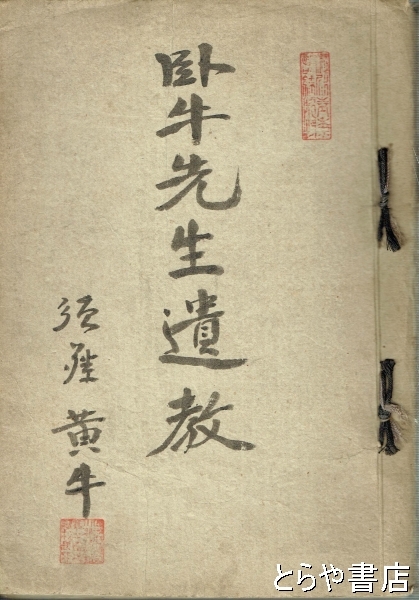 臥牛先生遺教
黄牛
とらや書店